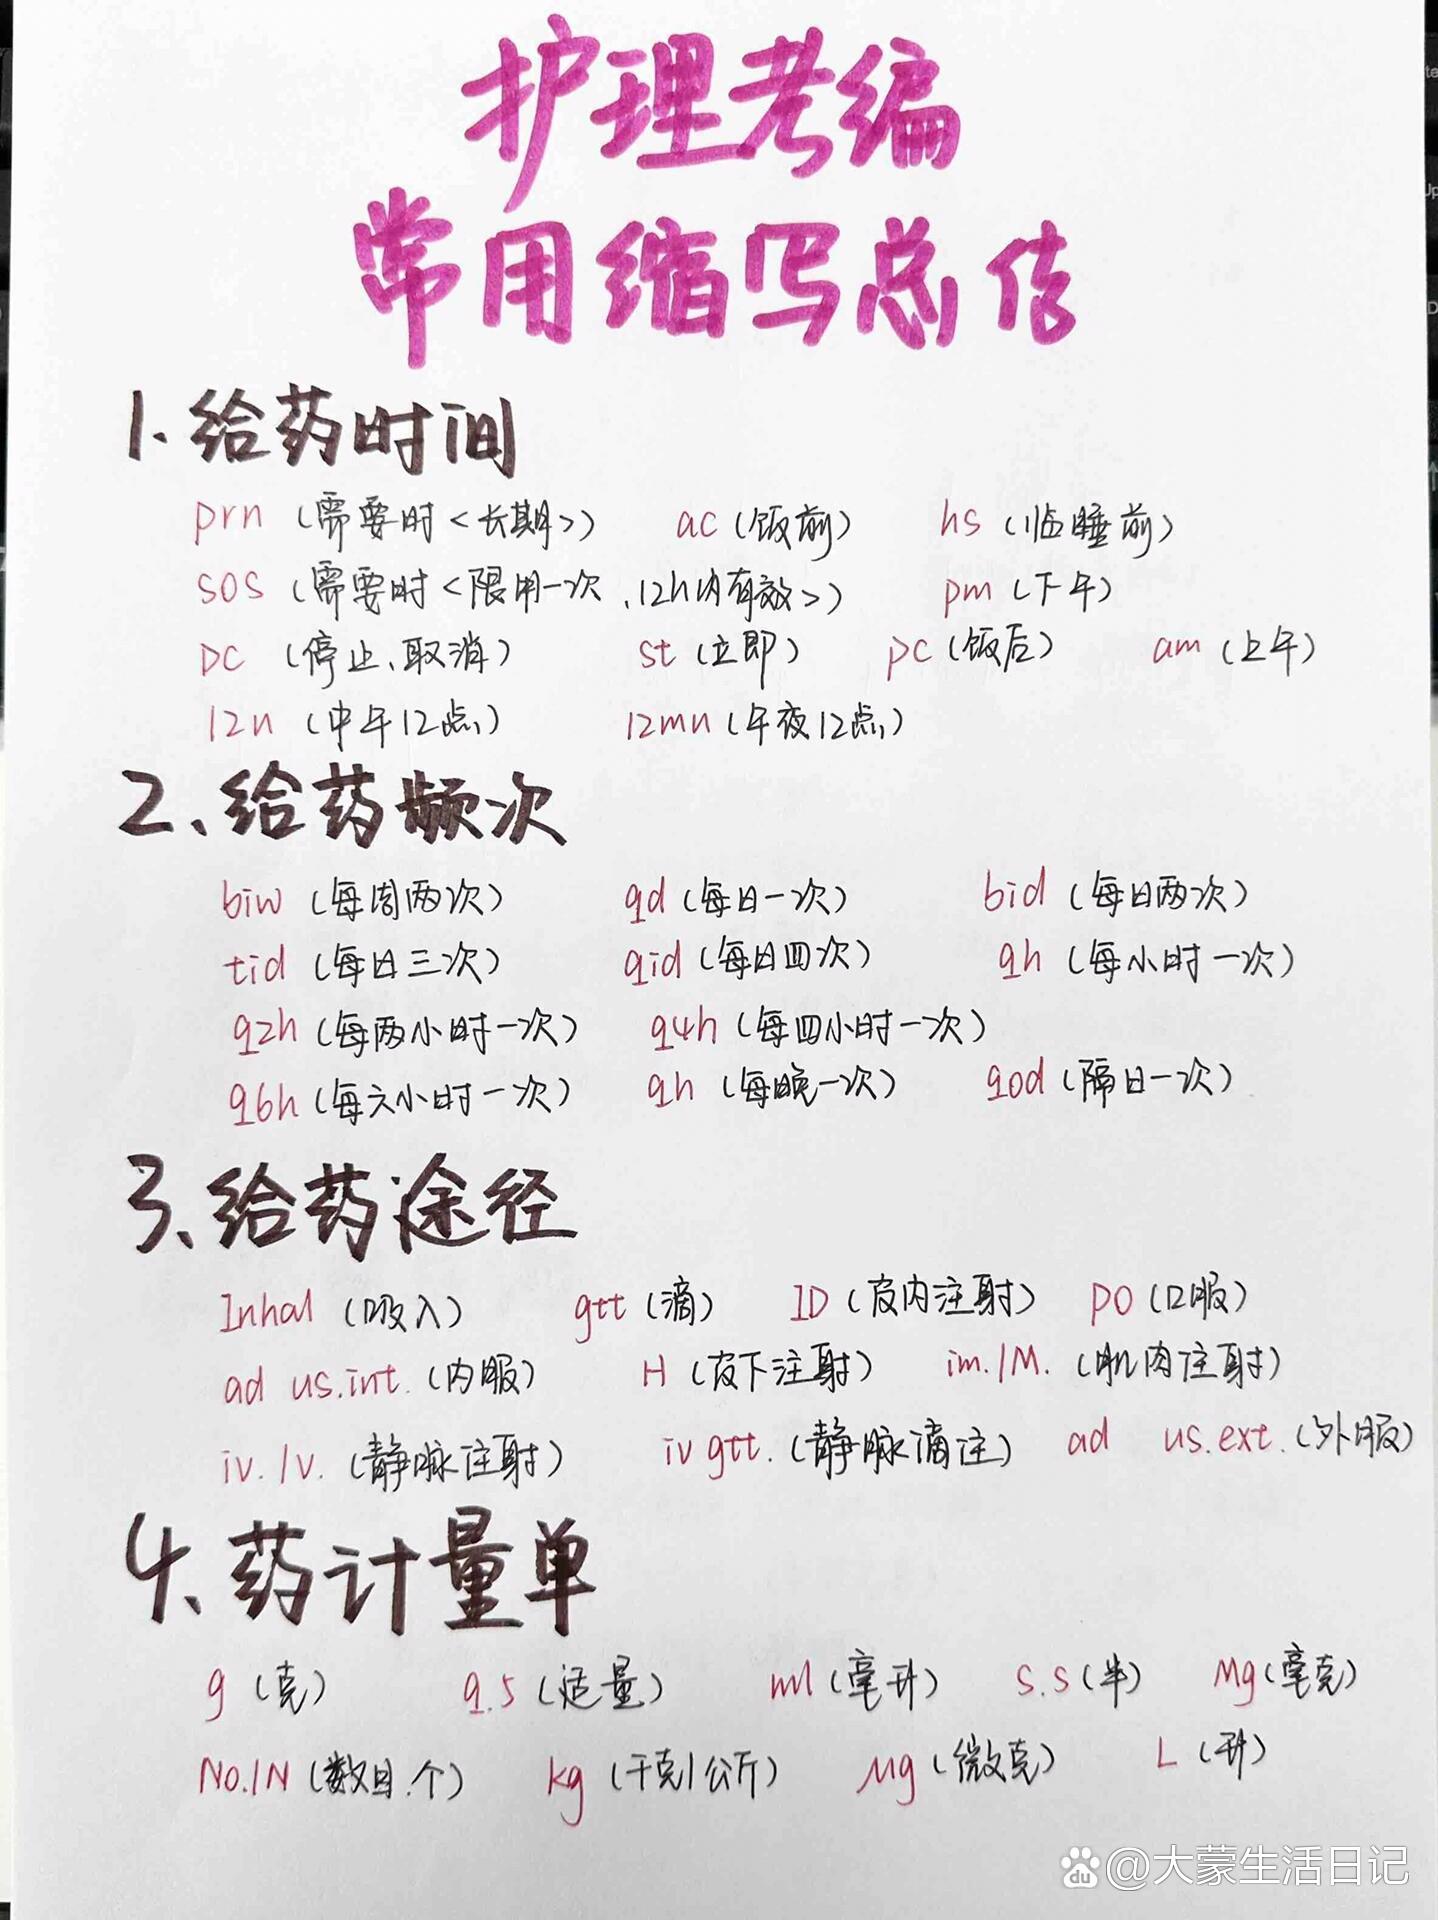 护理考编
常用缩写总结
1、给药时间
prn (需要时<长期>) ac (饭前) hs (临睡前)
SOS (需要时<限用一次、12h内有效>) pm (下午)
DC (停止、取消) st (立即) pc (饭后) am (上午)
12n (中午12点) 12mn (午夜12点)
2、给药频次
biw (每周两次) qd (每日一次) bid (每日两次)
tid (每日三次) qid (每日四次) qh (每小时一次)
q2h (每两小时一次) q4h (每四小时一次)
q6h (每六小时一次) qn (每晚一次) qod (隔日一次)
3、给药途径
Inhal (吸入) gtt (滴) ID (皮内注射) PO (口服)
ad us.int. (内服) H (皮下注射) im./M. (肌肉注射)
iv./v. (静脉注射) iv gtt. (静脉滴注) ad us.ext. (外服)
4、药计量单
g (克) q.s (适量) ml (毫升) s.s (半) Mg (毫克)
No./N (数目.个) kg (千克/公斤) μg (微克) L (升)
du @大蒙生活日记